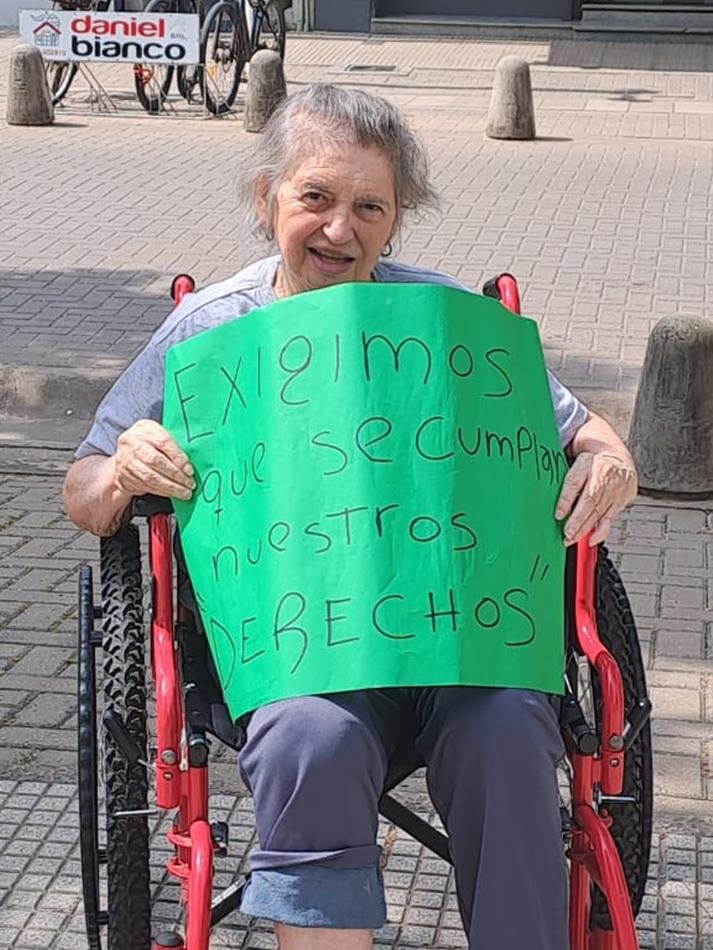 daniel SRL
bianco
Exigimos
que se cumplan
nuestros
"DERECHOS"